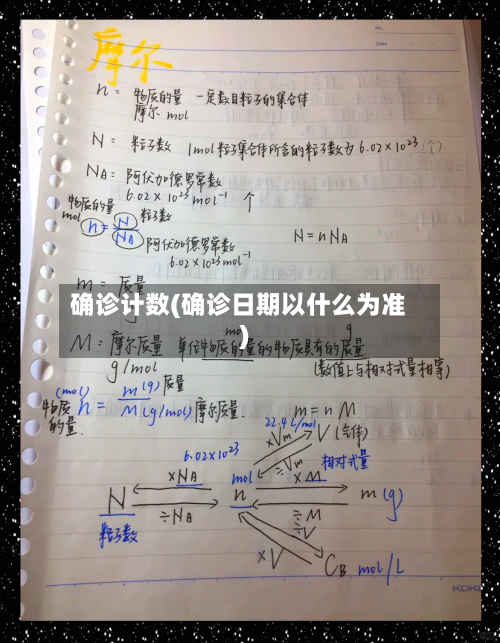 No.
Date
摩尔
n = 物质的量 一定数目粒子的集合体
摩尔 mol
N = 粒子数 1mol粒子集合体所含的粒子数为 6.02×10²³(个)
NA = 阿伏加德罗常数
6.02×10²³ mol⁻¹ 个
物质的量
mol n = N/NA 粒子数
阿伏加德罗常数
6.02×10²³mol⁻¹
N = n NA
m = 质量
确诊计数(确诊日期以什么为准
)
mol g
M = 摩尔质量 单位物质的量的物质具有的质量
g/mol (数值上与相对式量相等)
(mol) m(g) 质量
物质的量 n = M(g/mol) 摩尔质量
m = n M
22.4L/mol
×Vm V (气体)
÷Vm
6.02×10²³
相对式量
×NA mol ×M
N n m(g)
÷NA ÷M
粒子数
÷V
×V
CB mol/L
KOKU